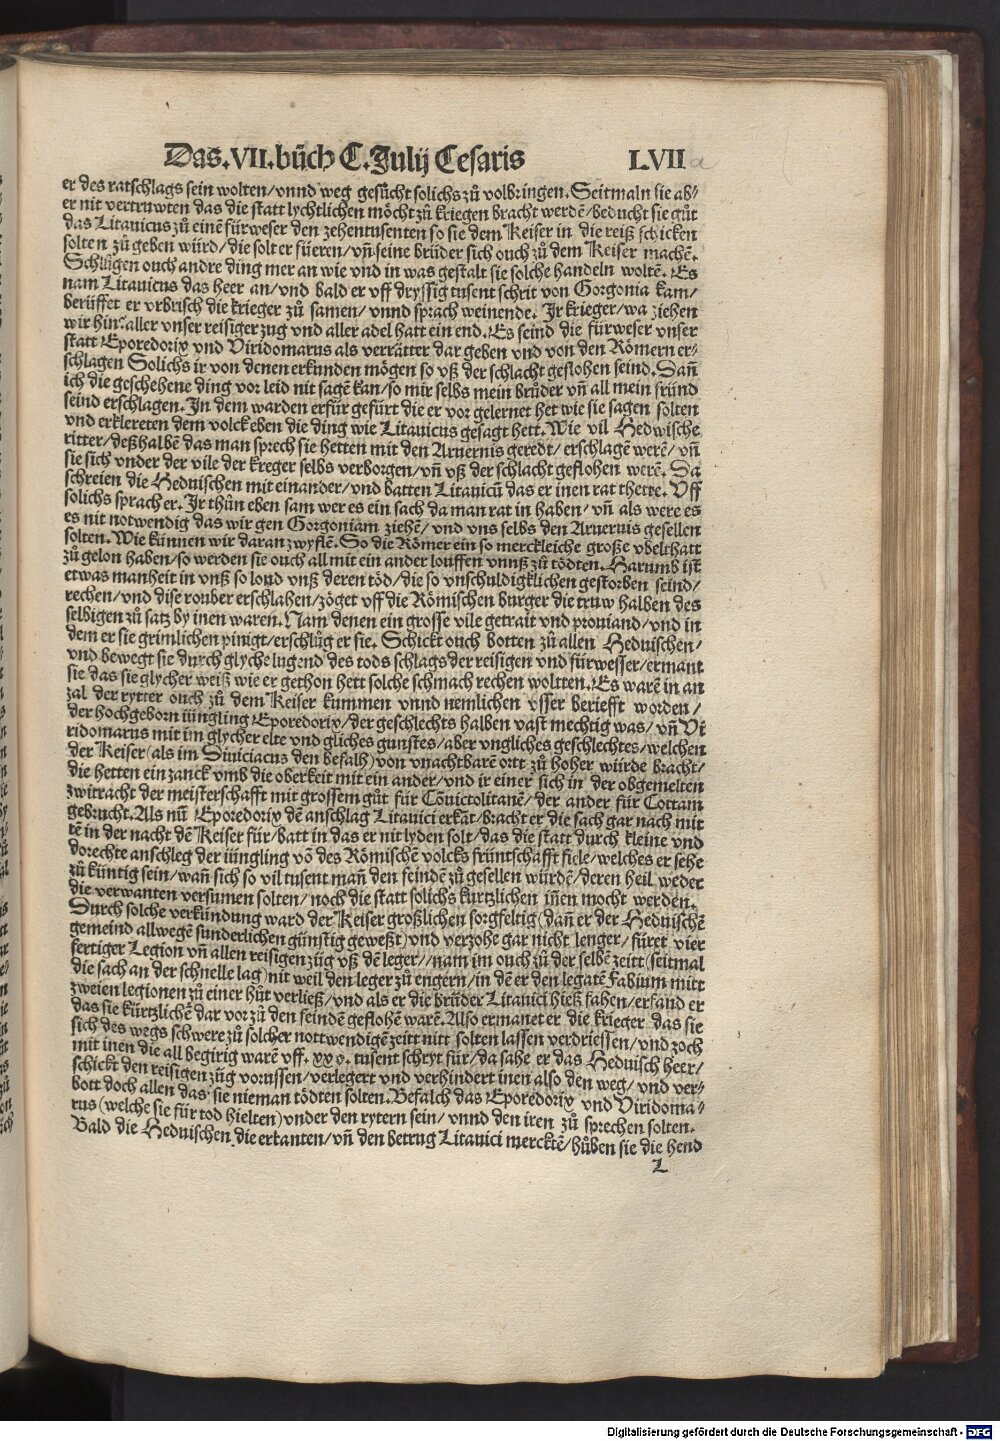 Das.VII.bůch C.Julij Cesaris LVII
er des ratschlags sein wolten/vnnd weg gesůcht solichs zů volbringen.Seitmaln sie ab⸗
er nit vertruwten das die statt lychtlichen möcht zů kriegen bracht werdē/beducht sie gůt
das Litauicus zů einē fürweser den zehentusenten so sie dem Keiser in die reiß schicken
solten zů geben würd/die solt er füeren/vñ seine brüder sich ouch zů dem Keiser machē.
Schlůgen ouch andre ding mer an wie vnd in was gestalt sie solche handeln woltē. Es
nam Litauicus das heer an/vnd bald er vff dryssig tusent schrit von Gorgonia kam/
berüffet er vrbrisch die krieger zů samen/vnnd sprach weinende. Ir krieger/wa ziehen
wir hin?aller vnser reisiger zug vnd aller adel hatt ein end.Es seind die fürweser vnser
statt Eporedorix vnd Viridomarus als verrätter dar geben vnd von den Römern er⸗
schlagen Solichs ir von denen erkunden mögen so vß der schlacht geflohen seind.Dañ
ich die geschehene ding vor leid nit sagē kan/so mir selbs mein brůder vñ all mein fründ
seind erschlagen.In dem warden erfür gefürt die er vor gelernet het wie sie sagen solten
vnd erklereten dem volck eben die ding wie Litauicus gesagt hett.Wie vil Hedwische
ritter/deßhalbē das man sprech sie hetten mit den Aruernis geredt/erschlagē werē/vñ
sie sich vnder der vile der kreger selbs verborgen/vñ vß der schlacht geflohen werē. Da
schreien die Heduischen mit einander/vnd batten Litauicū das er inen rat thette. Vff
solichs sprach er.Ir thůn eben sam wer es ein sach da man rat in haben/vñ als were es
es nit notwendig das wir gen Gorgoniam ziehē/vnd vns selbs den Aruernis gesellen
solten.Wie künnen wir daran zwyflē.So die Römer ein so merckleiche große vbelthatt
zů gelon haben/so werden sie ouch all mit ein ander louffen vnnß zů tödten.Harumb ist
etwas manheit in vnß so lond vnß deren töd/die so vnschuldigklichen gestorben seind/
rechen/vnd dise rouber erschlahen/zöget vff die Römischen burger die truw halben des
selbigen zů satz by inen waren.Nam denen ein grosse vile getrait vnd prouiand/vnd in
dem er sie grimlichen pinigt/erschlůg er sie. Schickt ouch botten zů allen Heduischen/
vnd bewegt sie durch glyche lugend des tods schlags der reisigen vnd fürwesser/ermant
sie das sie glycher weiß wie er gethon hett solche schmach rechen woltten.Es warē in an
zal der rytter ouch zů dem Keiser kummen vnnd nemlichen vsser berüefft worden/
der hochgeborn iüngling Eporedorix/der geschlechts halben vast mechtig was/vñ Vi
ridomarus mit im glycher elte vnd gliches gunstes/aber vngliches geschlechtes/welchen
der Keiser(als im Diuiciacus den befalh)von vnachtbarē ortt zů hoher würde bracht/
die hetten ein zanck vmb die oberkeit mit ein ander/vnd ir einer sich in der obgemelten
zwitracht der meisterschafft mit grossem gůt für Cōuictolitanē/der ander für Cottam
gebrucht.Als nū Eporedorix dē anschlag Litauici erkāt/bracht er die sach gar nach mit
tē in der nacht dē Keiser für/batt in das er nit lyden solt/das die statt durch kleine vnd
dorechte anschleg der iüngling vō des Römischē volcks früntschafft fiele/welches er sehe
zů künftig sein/wañ sich so vil tusent mañ den feindē zů gesellen würdē/deren heil weder
die verwanten versumen solten/noch die statt solichs kurtzlichen iñen mocht werden.
Durch solche verkündung ward der Keiser großlichen sorgfeltig(dañ er der Heduischē
gemeind allwegē sunderlichen günstig geweßt)vnd verzohe gar nicht lenger/füret vier
fertiger Legion vñ allen reisigen züg vß dē leger//nam im ouch zů der selbē zeitt(seitmal
die sach an der schnelle lag)nit weil den leger zů engern/in dē er den legatē Fabium mitt
zweien legionen zů einer hůt verließ/vnd als er die brüder Litauici hieß fahen/erfand er
das sie kürtzlichē dar vor zů den feindē geflohē warē.Also ermanet er die krieger das sie
sich des wegs schwere zů solcher nottwendigē zeitt nitt solten lassen verdriessen/vnd zoch
mit inen die all begirig warē vff.xxv.tusent schryt für/da sahe er das Heduisch heer/
schickt den reisigen züg vorussen/verlegert vnd verhindert inen also den weg/vnd ver⸗
bott doch allen das sie nieman tödten solten.Befalch das Eporedorix vnd Viridoma⸗
rus(welche sie für tod hielten)vnder den rytern sein/vnnd den iren zů sprechen solten.
Bald die Heduischen die erkanten/vñ den betrug Litauici mercktē/hůben sie die hend
L
Digitalisierung gefördert durch die Deutsche Forschungsgemeinschaft - DFG